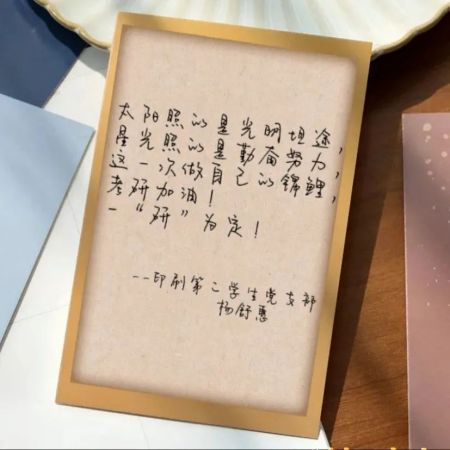 太阳照的是光明坦途，
星光照的是勤奋努力，
这一次做自己的锦鲤，
考研加油！
一“研”为定！
--印刷第二学生党支部
杨舒惠